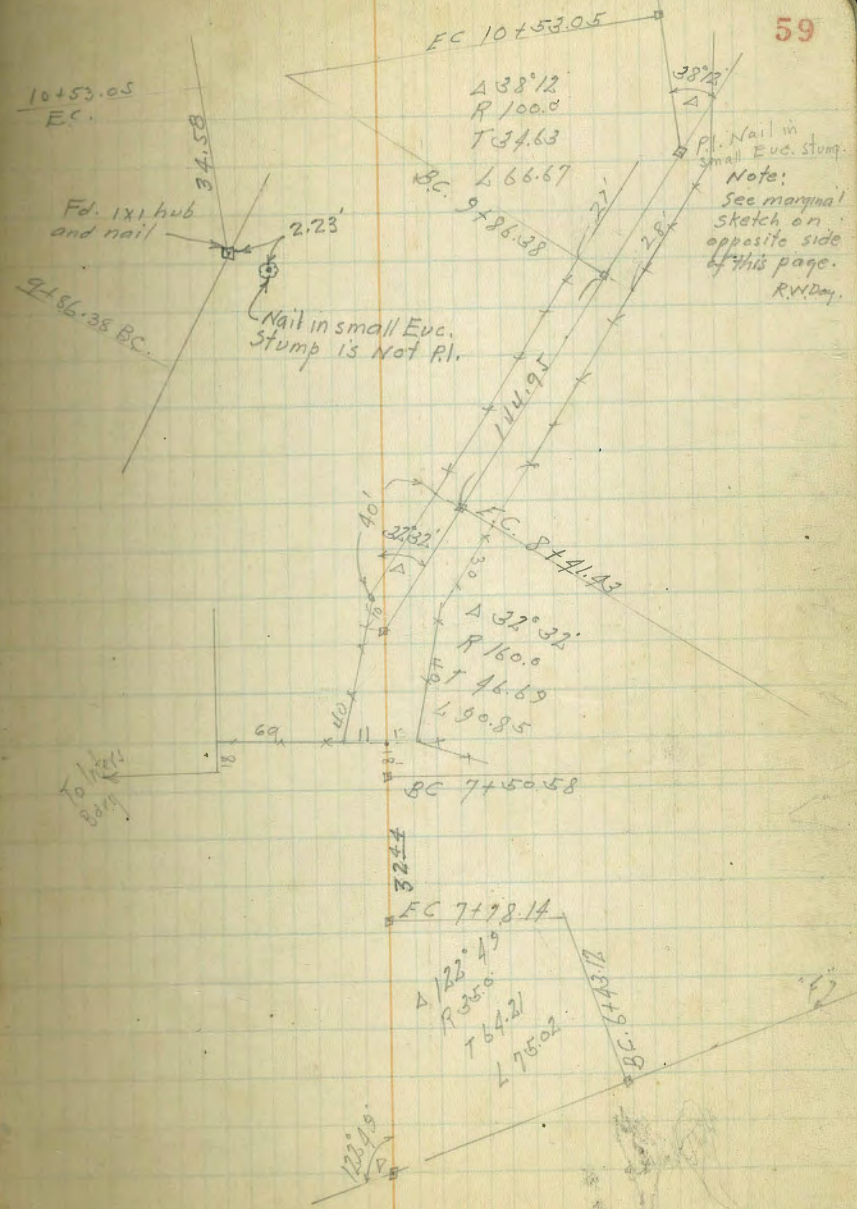 59
EC 10+53.05
10+53.05
E.C.
34.58
Δ 38°12
R 100.0
T 34.63
L 66.67
38°12'
Δ
P.I. Nail in
small Euc. Stump.
Note:
See marginal
sketch on
opposite side
of this page.
R.W.Day.
B.C.
9+86.38
27'
28'
Fd. 1x1 hub
and nail
2.23'
Nail in small Euc.
Stump is Not P.I.
9+86.38 BC.
144.95
40'
32°32'
Δ
E.C. 8+41.43
30
Δ 32°32'
R 160.0
T 46.69
L 90.85
40
40
69
11
18
18
BC 7+50.58
3244
EC 7+18.14
Δ 122°49
R 35.0
T 64.21
L 75.02
BC. 6+43.12
122°49'
Δ